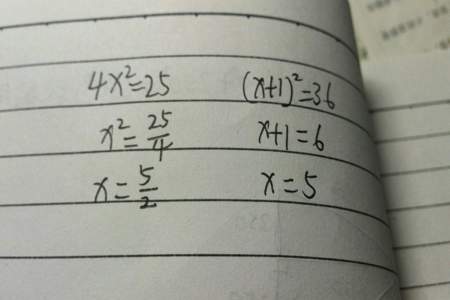 4x²=25 (x+1)²=36
x²=25/4 x+1=6
x=5/2 x=5